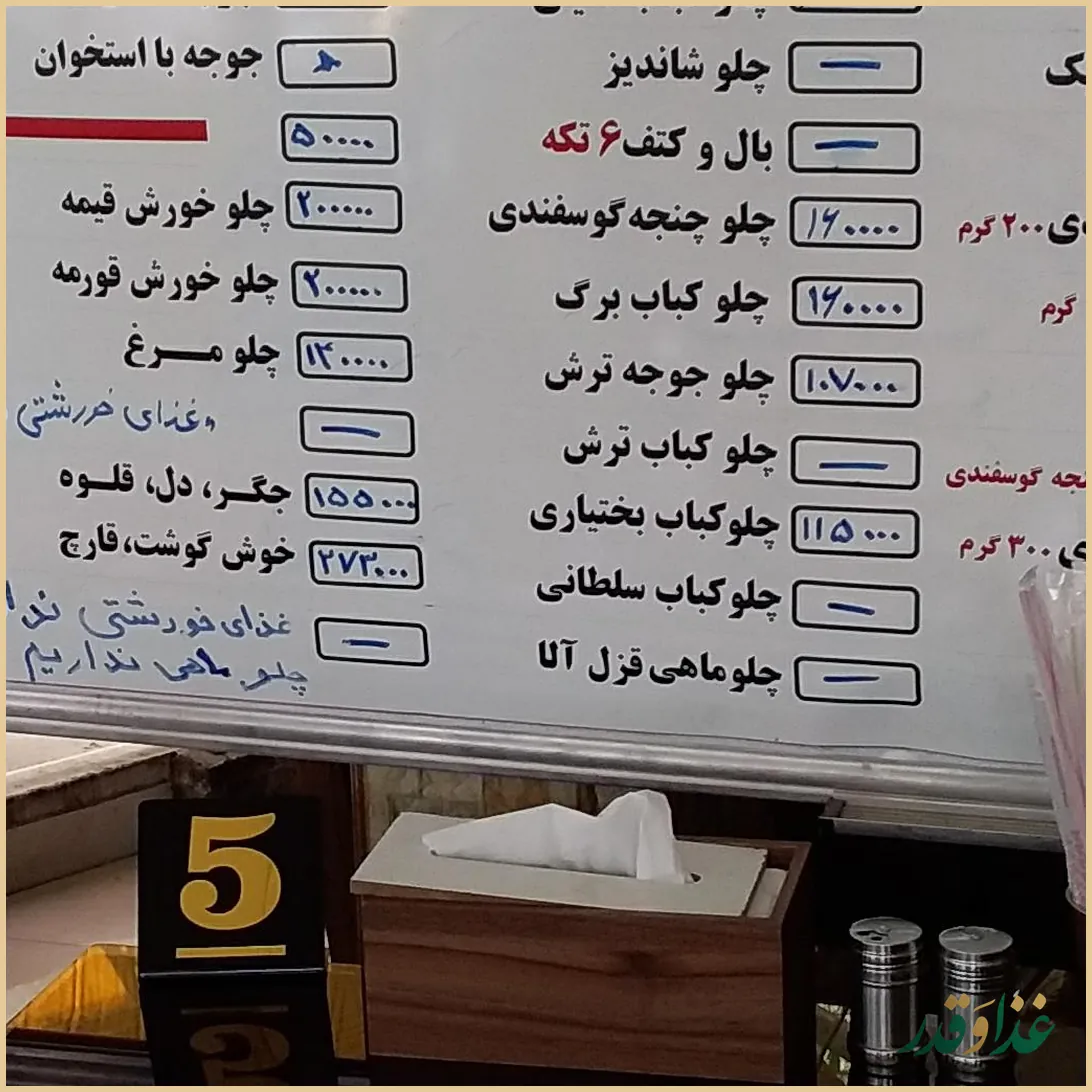 ۲۰۰ گرم
گرم
گوسفندی
۳۰۰ گرم
— چلو شاندیز
— بال و کتف ۶ تکه
۱۶۰۰۰۰ چلو چنجه گوسفندی
۱۶۰۰۰۰ چلو کباب برگ
۱۰۷۰۰۰ چلو جوجه ترش
— چلو کباب ترش
۱۱۵۰۰۰ چلوکباب بختیاری
— چلوکباب سلطانی
— چلوماهی قزل آلا
جوجه با استخوان
۵۰۰۰۰
۲۰۰۰۰۰ چلو خورش قیمه
۲۰۰۰۰۰ چلو خورش قورمه
۱۴۰۰۰۰ چلو مـــرغ
— غذای خورشتی
۱۵۵۰۰۰ جگـــر، دل، قلـــوه
۲۷۳۰۰۰ خوش گوشت،قارچ
— غذای خورشتی
چلو ماهی نداریم
5
غذا و قدر